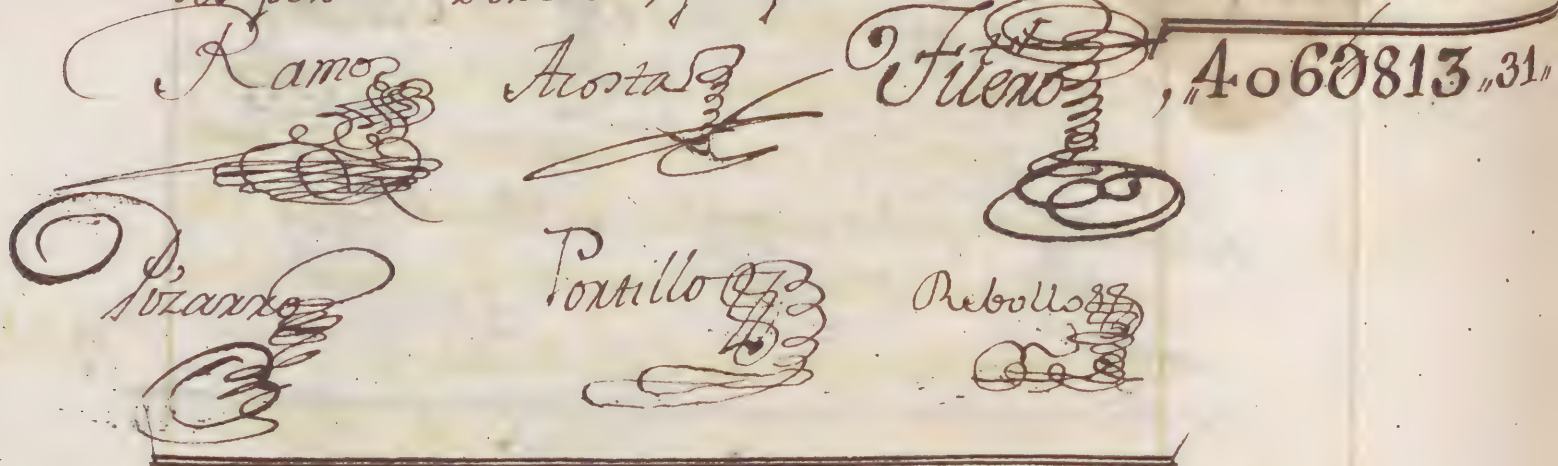 Ramos Acosta Fuero ,,4060813,,31,,
Pizarro Portillo Rebollo